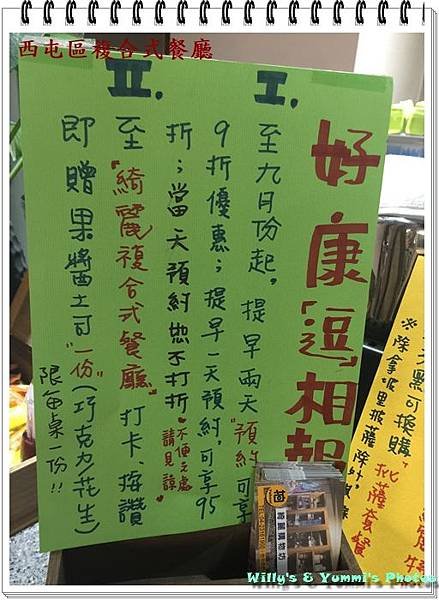 西屯區複合式餐廳
好康「逗」相報
I. 至九月份起，提早兩天"預約"可享
9折優惠；提早一天預約，可享95
折；當天預約恕不打折
不便之處
請見諒
II. 至"綺麗複合式餐廳"打卡、按讚
即贈果醬土司"一份"（巧克力/花生）
限每桌一份!!
可換購
批薩套餐
※除拿坡里披薩除外
Willy's & Yummi's Photos